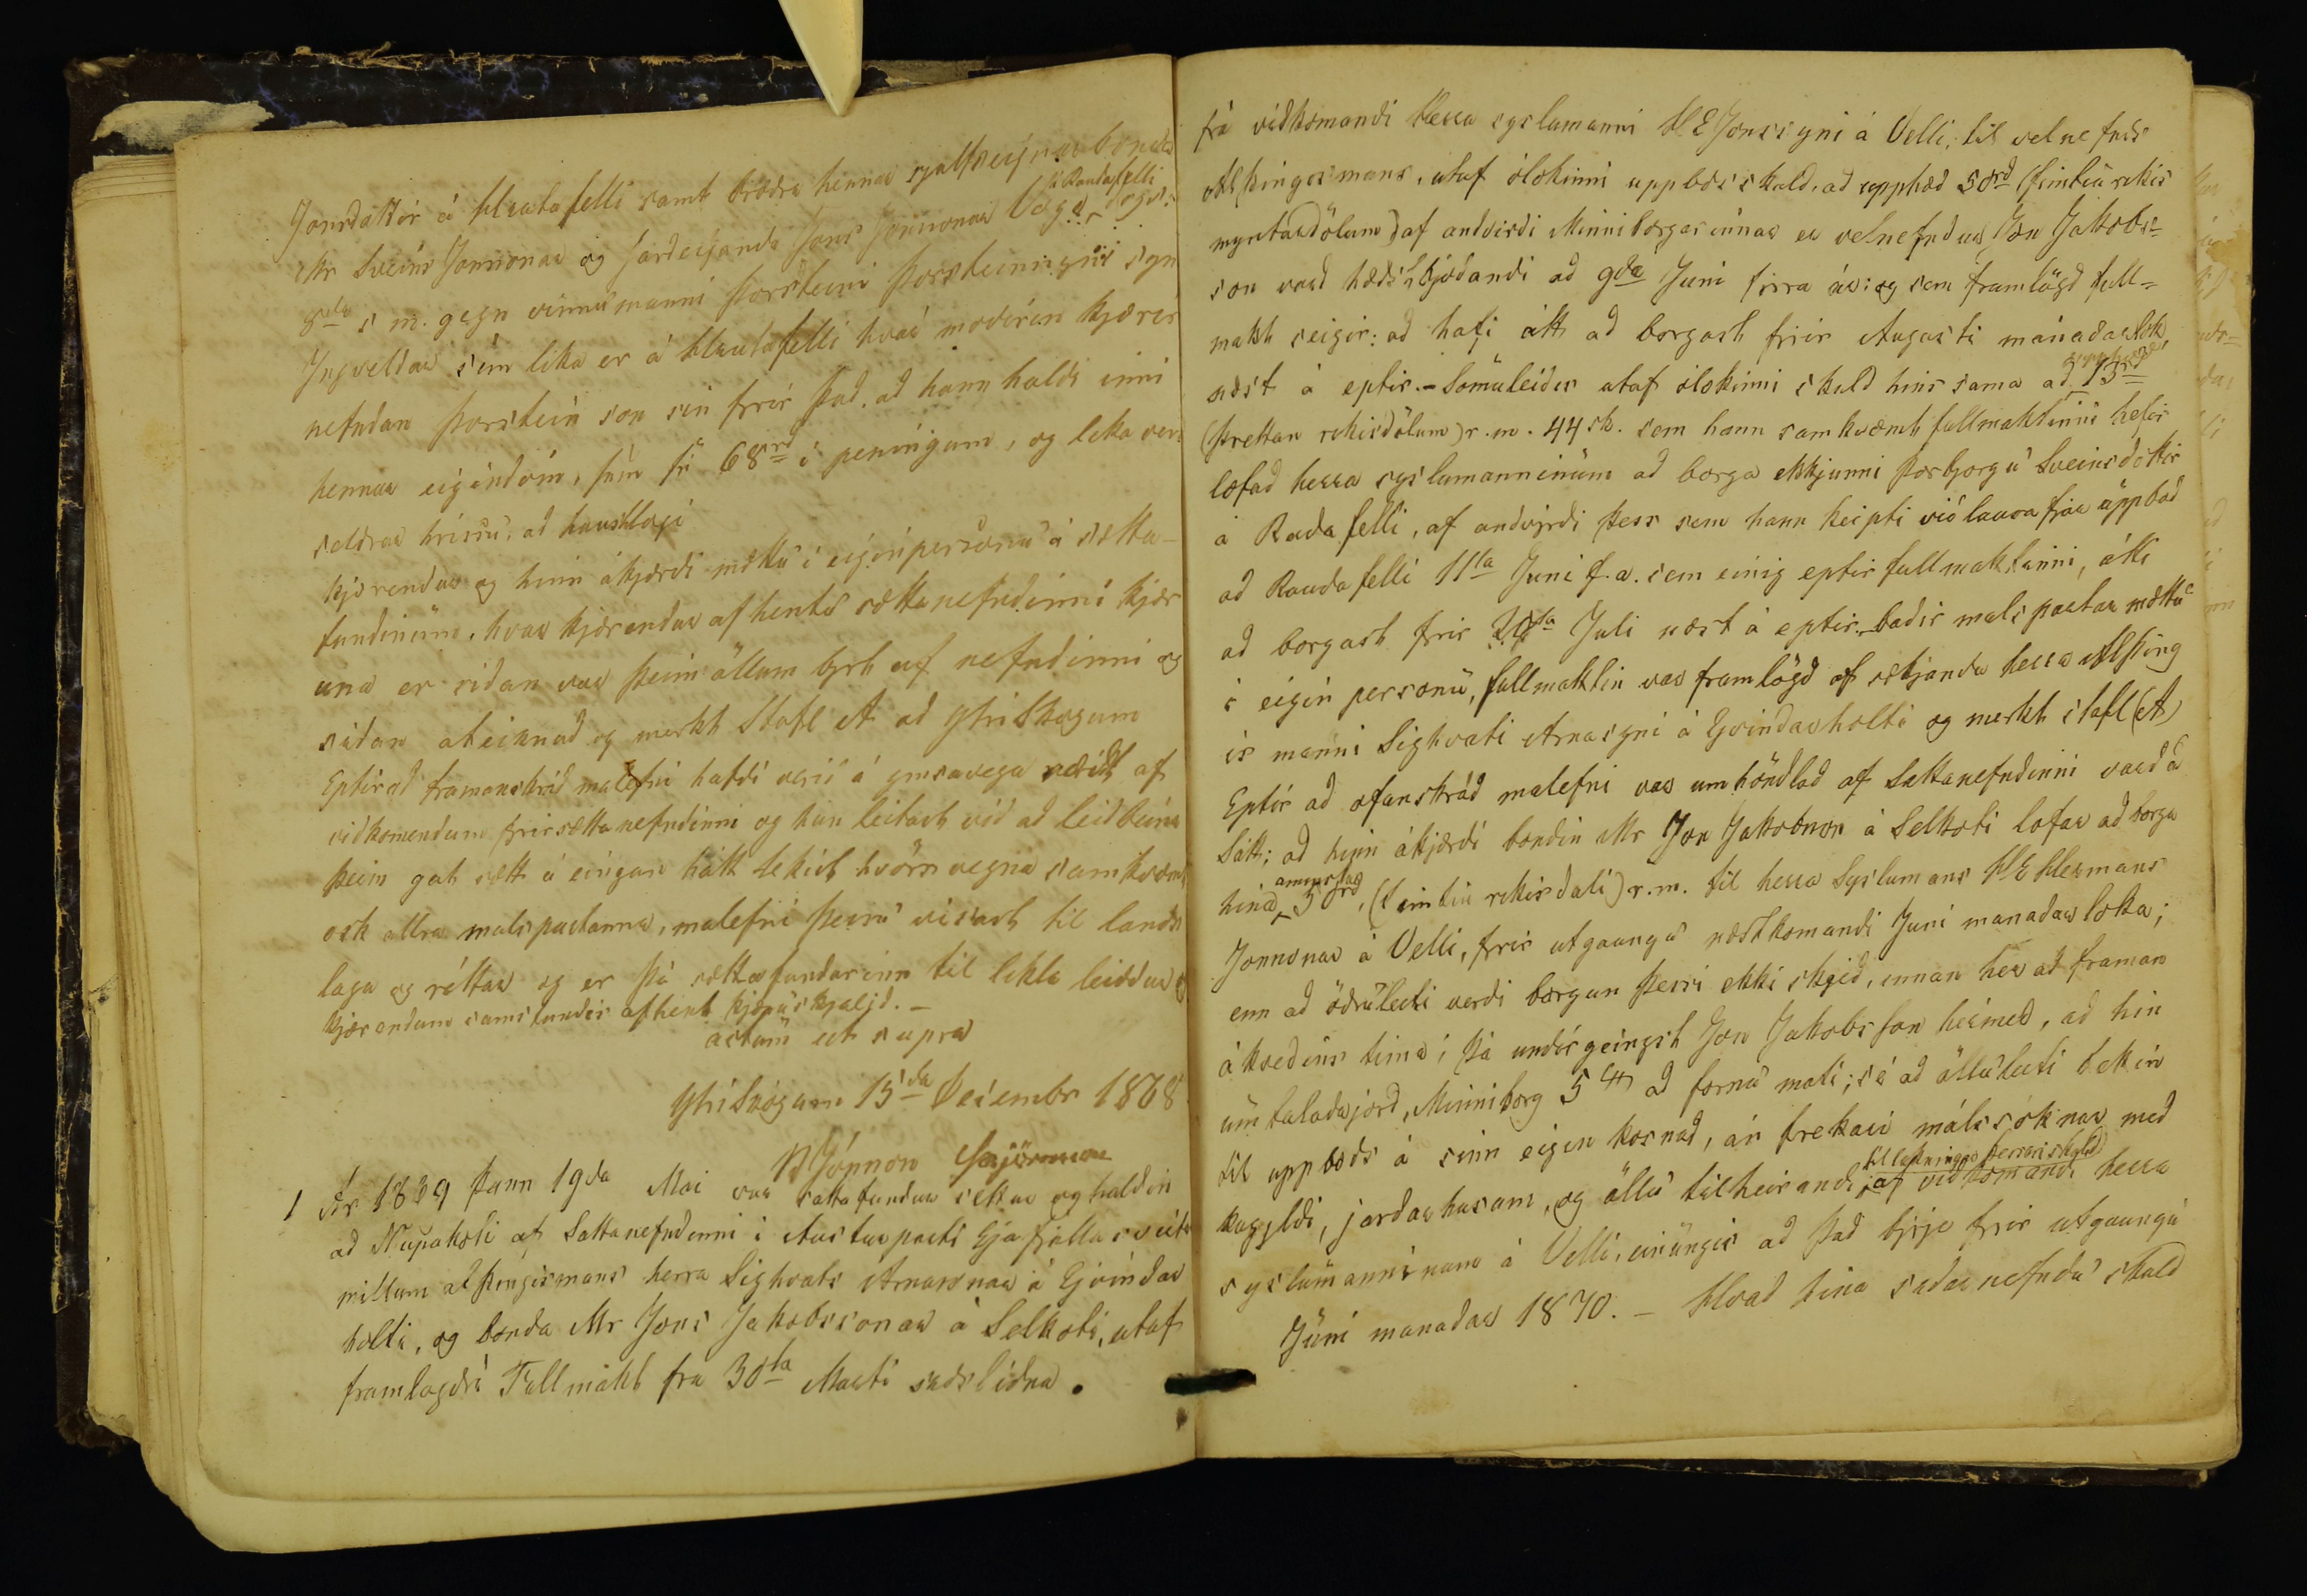 Jonsdottir á Hrutafelli samt brodra hennar sjalfseignarbonda
á Raudafelli
Mr Sveins Jonssonar og Jardeiganda Jons Jonssonar
8da s m. gegn vinnumanni Þorsteini Þorsteinssyni syn
Ingveldar sem lika er á Hrutafelli hvar modirin kjærir
nefndan Þorstein son sin firir það, að hann haldi inni
hennar eigindom, sem sé 68rd i peningum, og lika ver
seldrar hrissu, að haustlagi
kjærendur og hinn ákjærdi mættu i eigin persónu á sætta-
fundinum, hvar kjærendur afhentu sættanefndinni kjær
una er sidan var þeim öllum byrt af nefndinni og
sidan áteiknad og merkt Stafl A ad Ytriskogum
Eptir ad framanskrid malefni hafdi verid á ymsavega rædt af
vidkomendum firir sættanefndinni og hun leitast vid ad leidbeina
þeim gat sætt á eingan hátt tekist hvörs vegna samkvæmt
osk allra malspartanna, malefni þessu visast til lands
laga og réttar og er þá sættafundurinn til lykta leiddur og
kjærendum samstundis afhent kjæruskjalid. –
actum ut supra
Ytriskógum 15da Decembr 1868
J Jónsson
1 Ár 1869 þann 19da Mai var sattafundur settur og haldin
að Nupakoti af Sattanefndinni i Austurparti Eyafjallasveitar
millum alþingismans herra Sighvats Arnasonar á Eyvindar
holti, og bonda Mr Jons Jakobssonar á Selkoti, útaf
framlagdri Fullmakt fra 30ta Marti sidslidna.
frá vidkomandi Herra syslumanni H E Jonssyni á Velli, til velnefnds
Alþingismans, utaf ólokinni uppbodsskuld, ad upphæd 50rd (fimtiu rikis
myntardölum) af andvirdi Minniborgarinnar er velnefndur Jon Jakobs=
son vard hædstbjodandi ad 9da Juni firra ár: og sem framlögd full=
makt seigir: ad hafi átt ad borgast firir Augusti mánadarlok
næst á eptir. – Sömuleidis utaf ólokinni skuld hins sama ad upphæd 13rd
(þrettan rikisdölum) r. m. 44 sk. sem hann samkvæmt fullmaktinni hefir
lofad herra syslumanninum ad borga ekkjunni Þorbjorgu Sveinsdóttir
á Raudafelli, af andvirdi þess sem hann keipti vid lausafjár uppbod
ad Raudafelli 11ta Juni f. a. sem einig eptir fullmaktinni, átti
ad borgast firir 20ta Juli næst á eptir. – badir malspartar mættu
i eigin personu, fullmaktin var framlögd af sækjanda herra Alþing
is manni Sighvati Arnasyni á Eyvindarholti og merkt stafl (A)
Eptir ad ofanskrád malefni var umhöndlad af Sattanefndinni vard á
Sátt; ad hinn ákjærdi bondin Mr Jon Jakobsson á Selkoti lofar ad borga
hina
ámynstað
50rd, (fimtiu rikisdali) r. m. til herra Syslumans H E Hermans
Jonssonar á Velli, firir utgaungu næstkomandi Juni manadar loka;
enn ad ödruleiti verdi borgun þessi ekki skjed, innan her ad framan
ákvedins tima; þá undirgeingst Jon Jakobsson hermed, ad hin
umtaladajord, Minniborg 5 ad fornu mati; sé ad ölluleiti tekin
til uppbods á sinn eigin kosnad, án frekari málssoknar med
kugyldi, jardarhusum, og öllu tilheirandi,
til lukningar þessari skuld
af vidkomandi herra
syslumanninum á Velli, einungis ad það skje firir utgaungu
Júni manadar 1870. – Hvad hina sidarnefndu skuld